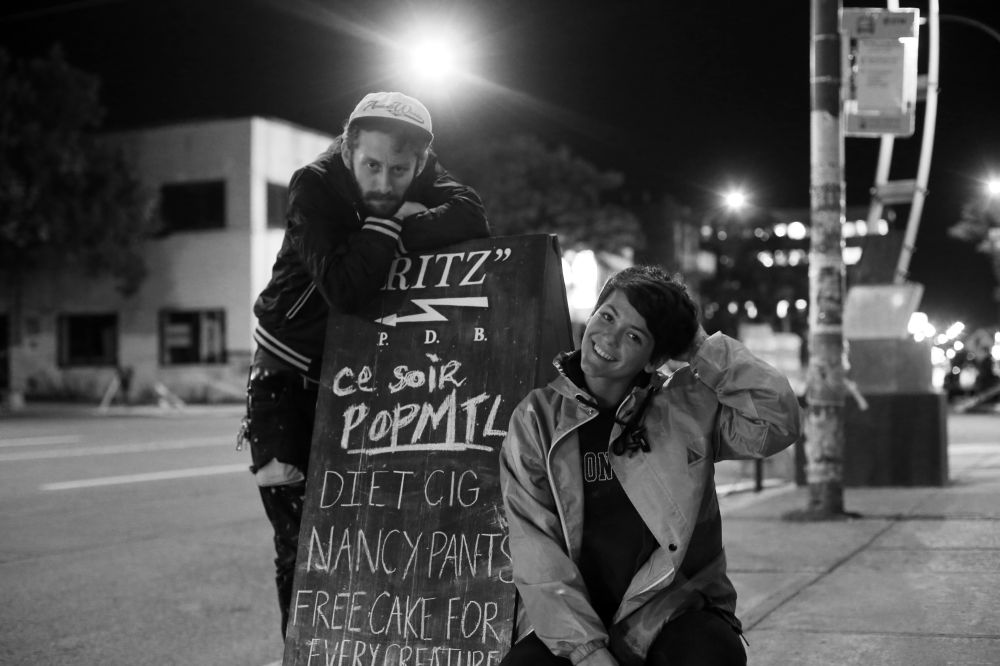 RITZ”
P. D. B.
ce soir
POPMTL
DIET CIG
NANCY PANTS
FREE CAKE FOR
EVERY CREATURE
ON